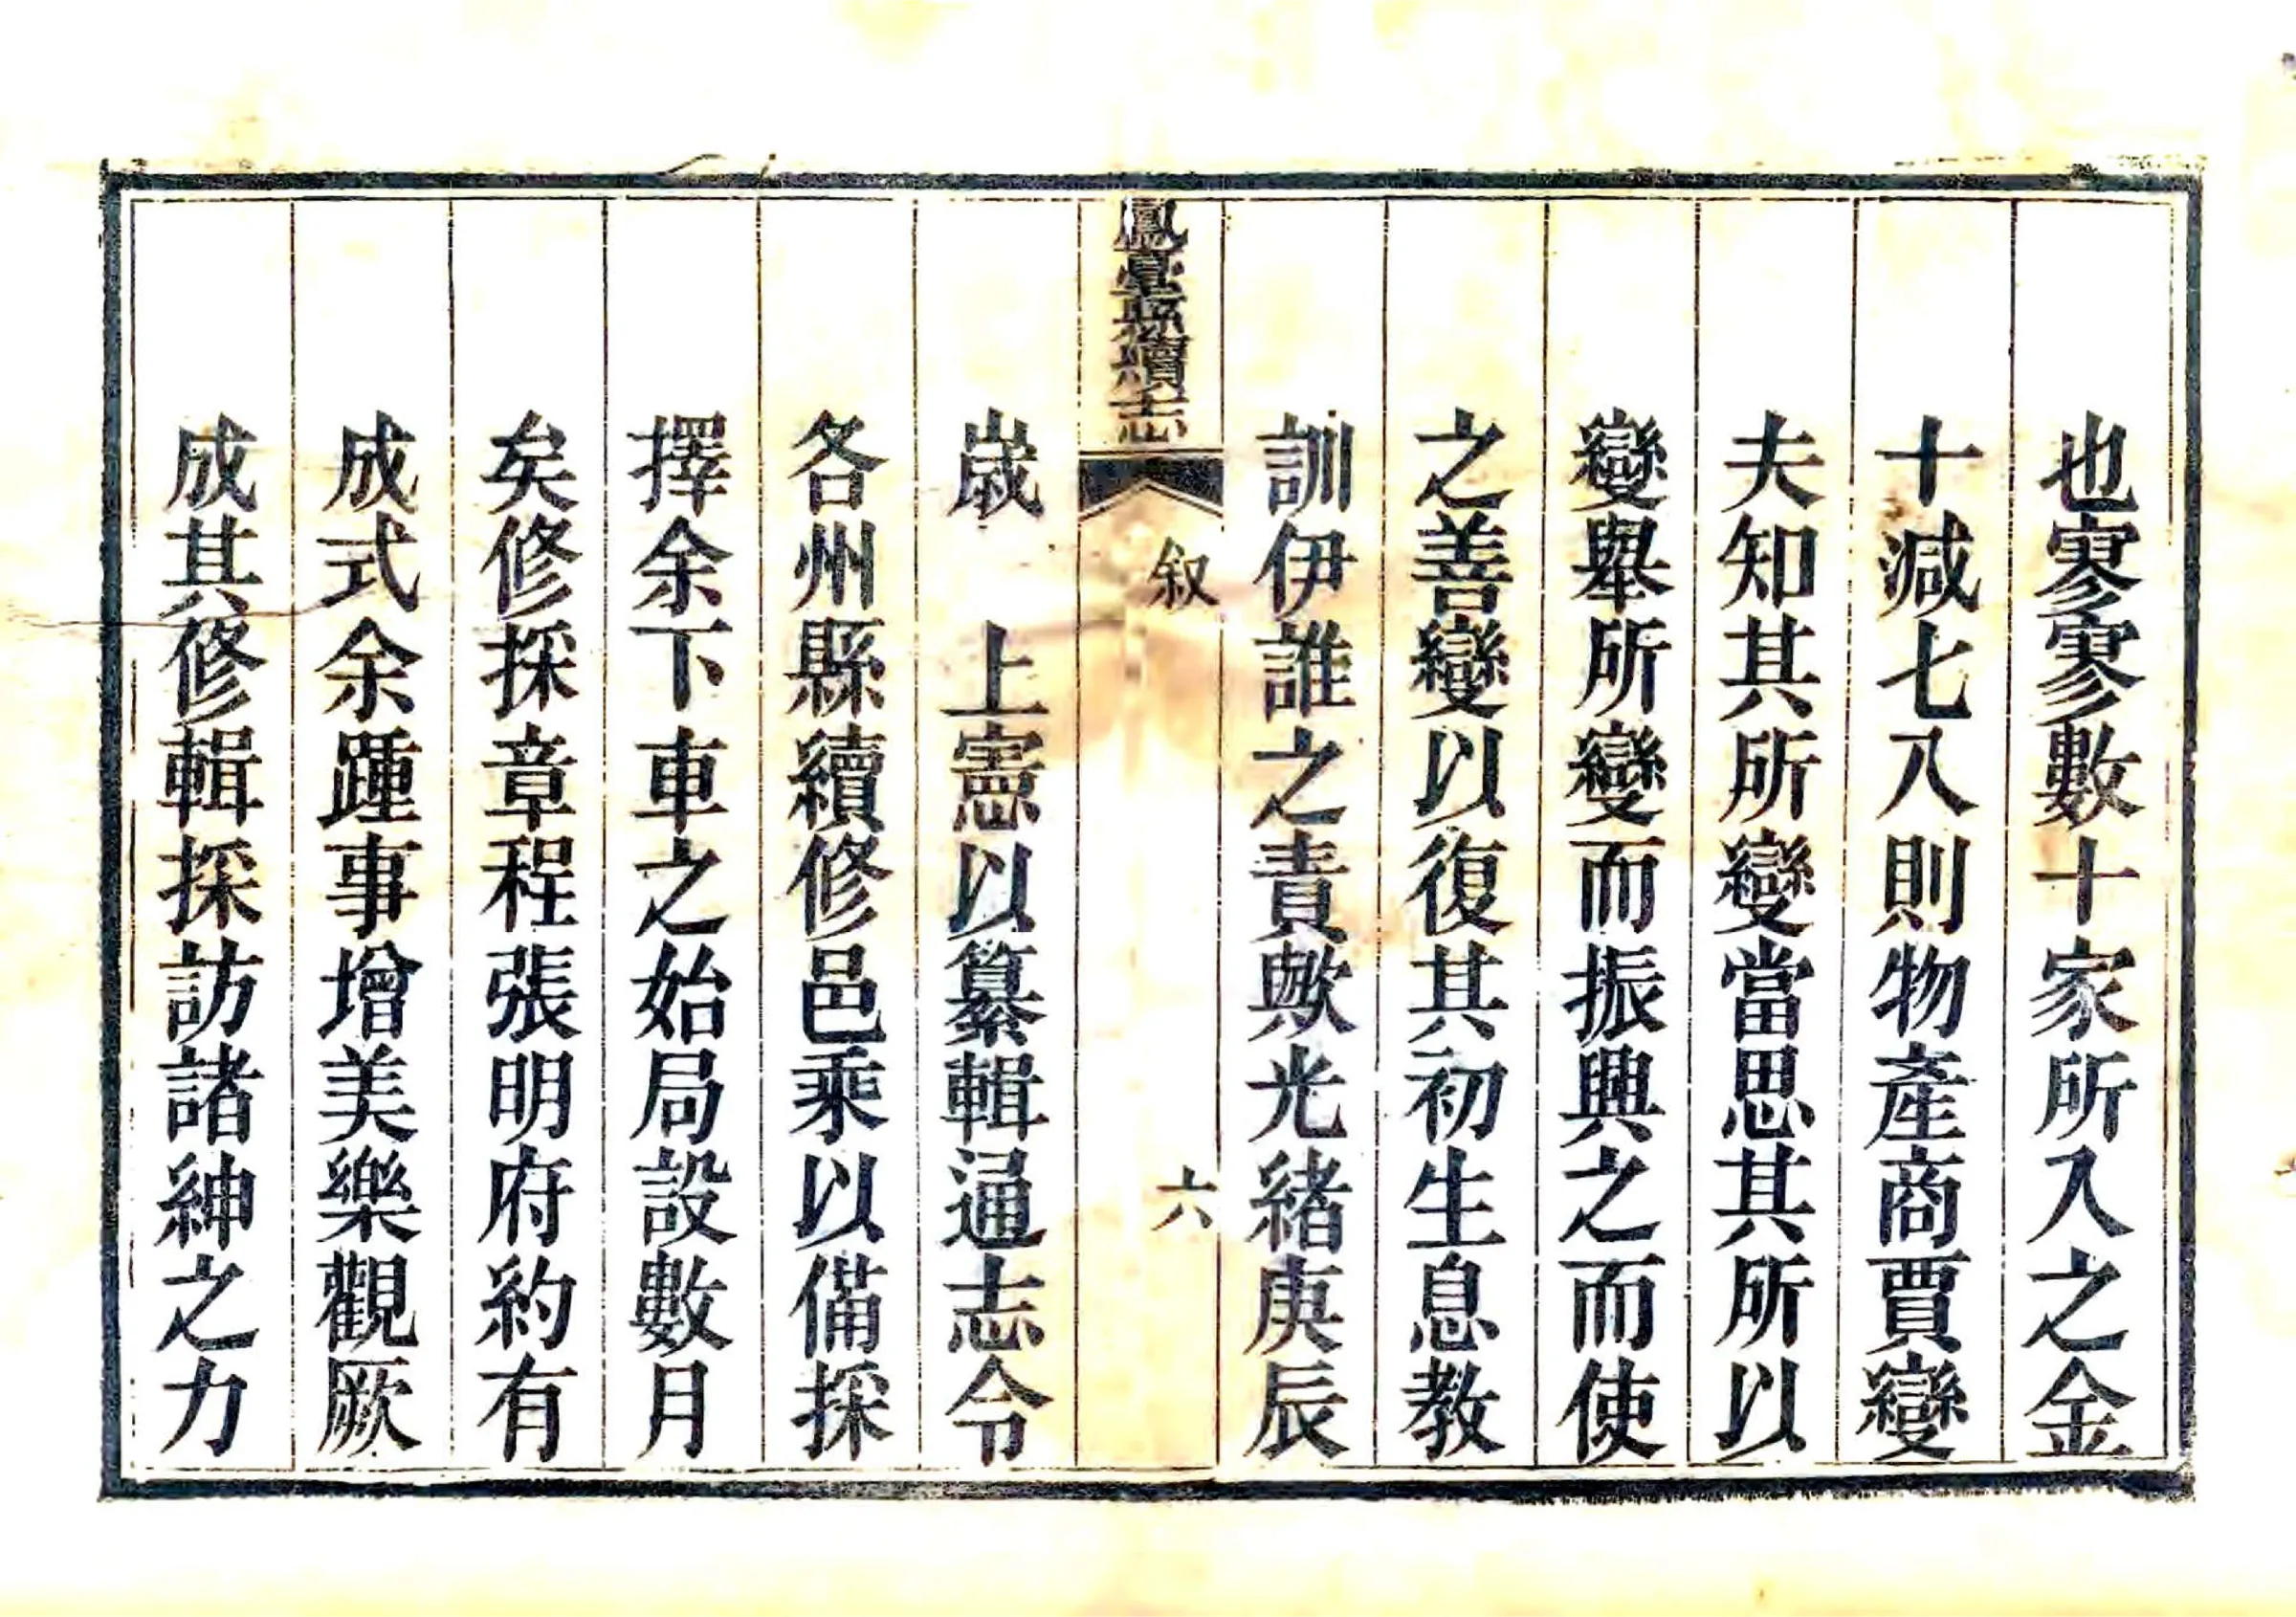 也寥寥數十家所入之金
十減七八則物產商賈變
夫知其所變當思其所以
變舉所變而振興之而使
之善變以復其初生息教
訓伊誰之責歟光緒庚辰
鳳臺縣續志
叙
六
歲　上憲以纂輯通志令
各州縣續修邑乘以備採
擇余下車之始局設數月
矣修採章程張明府約有
成式余踵事增美樂觀厥
成其修輯採訪諸紳之力